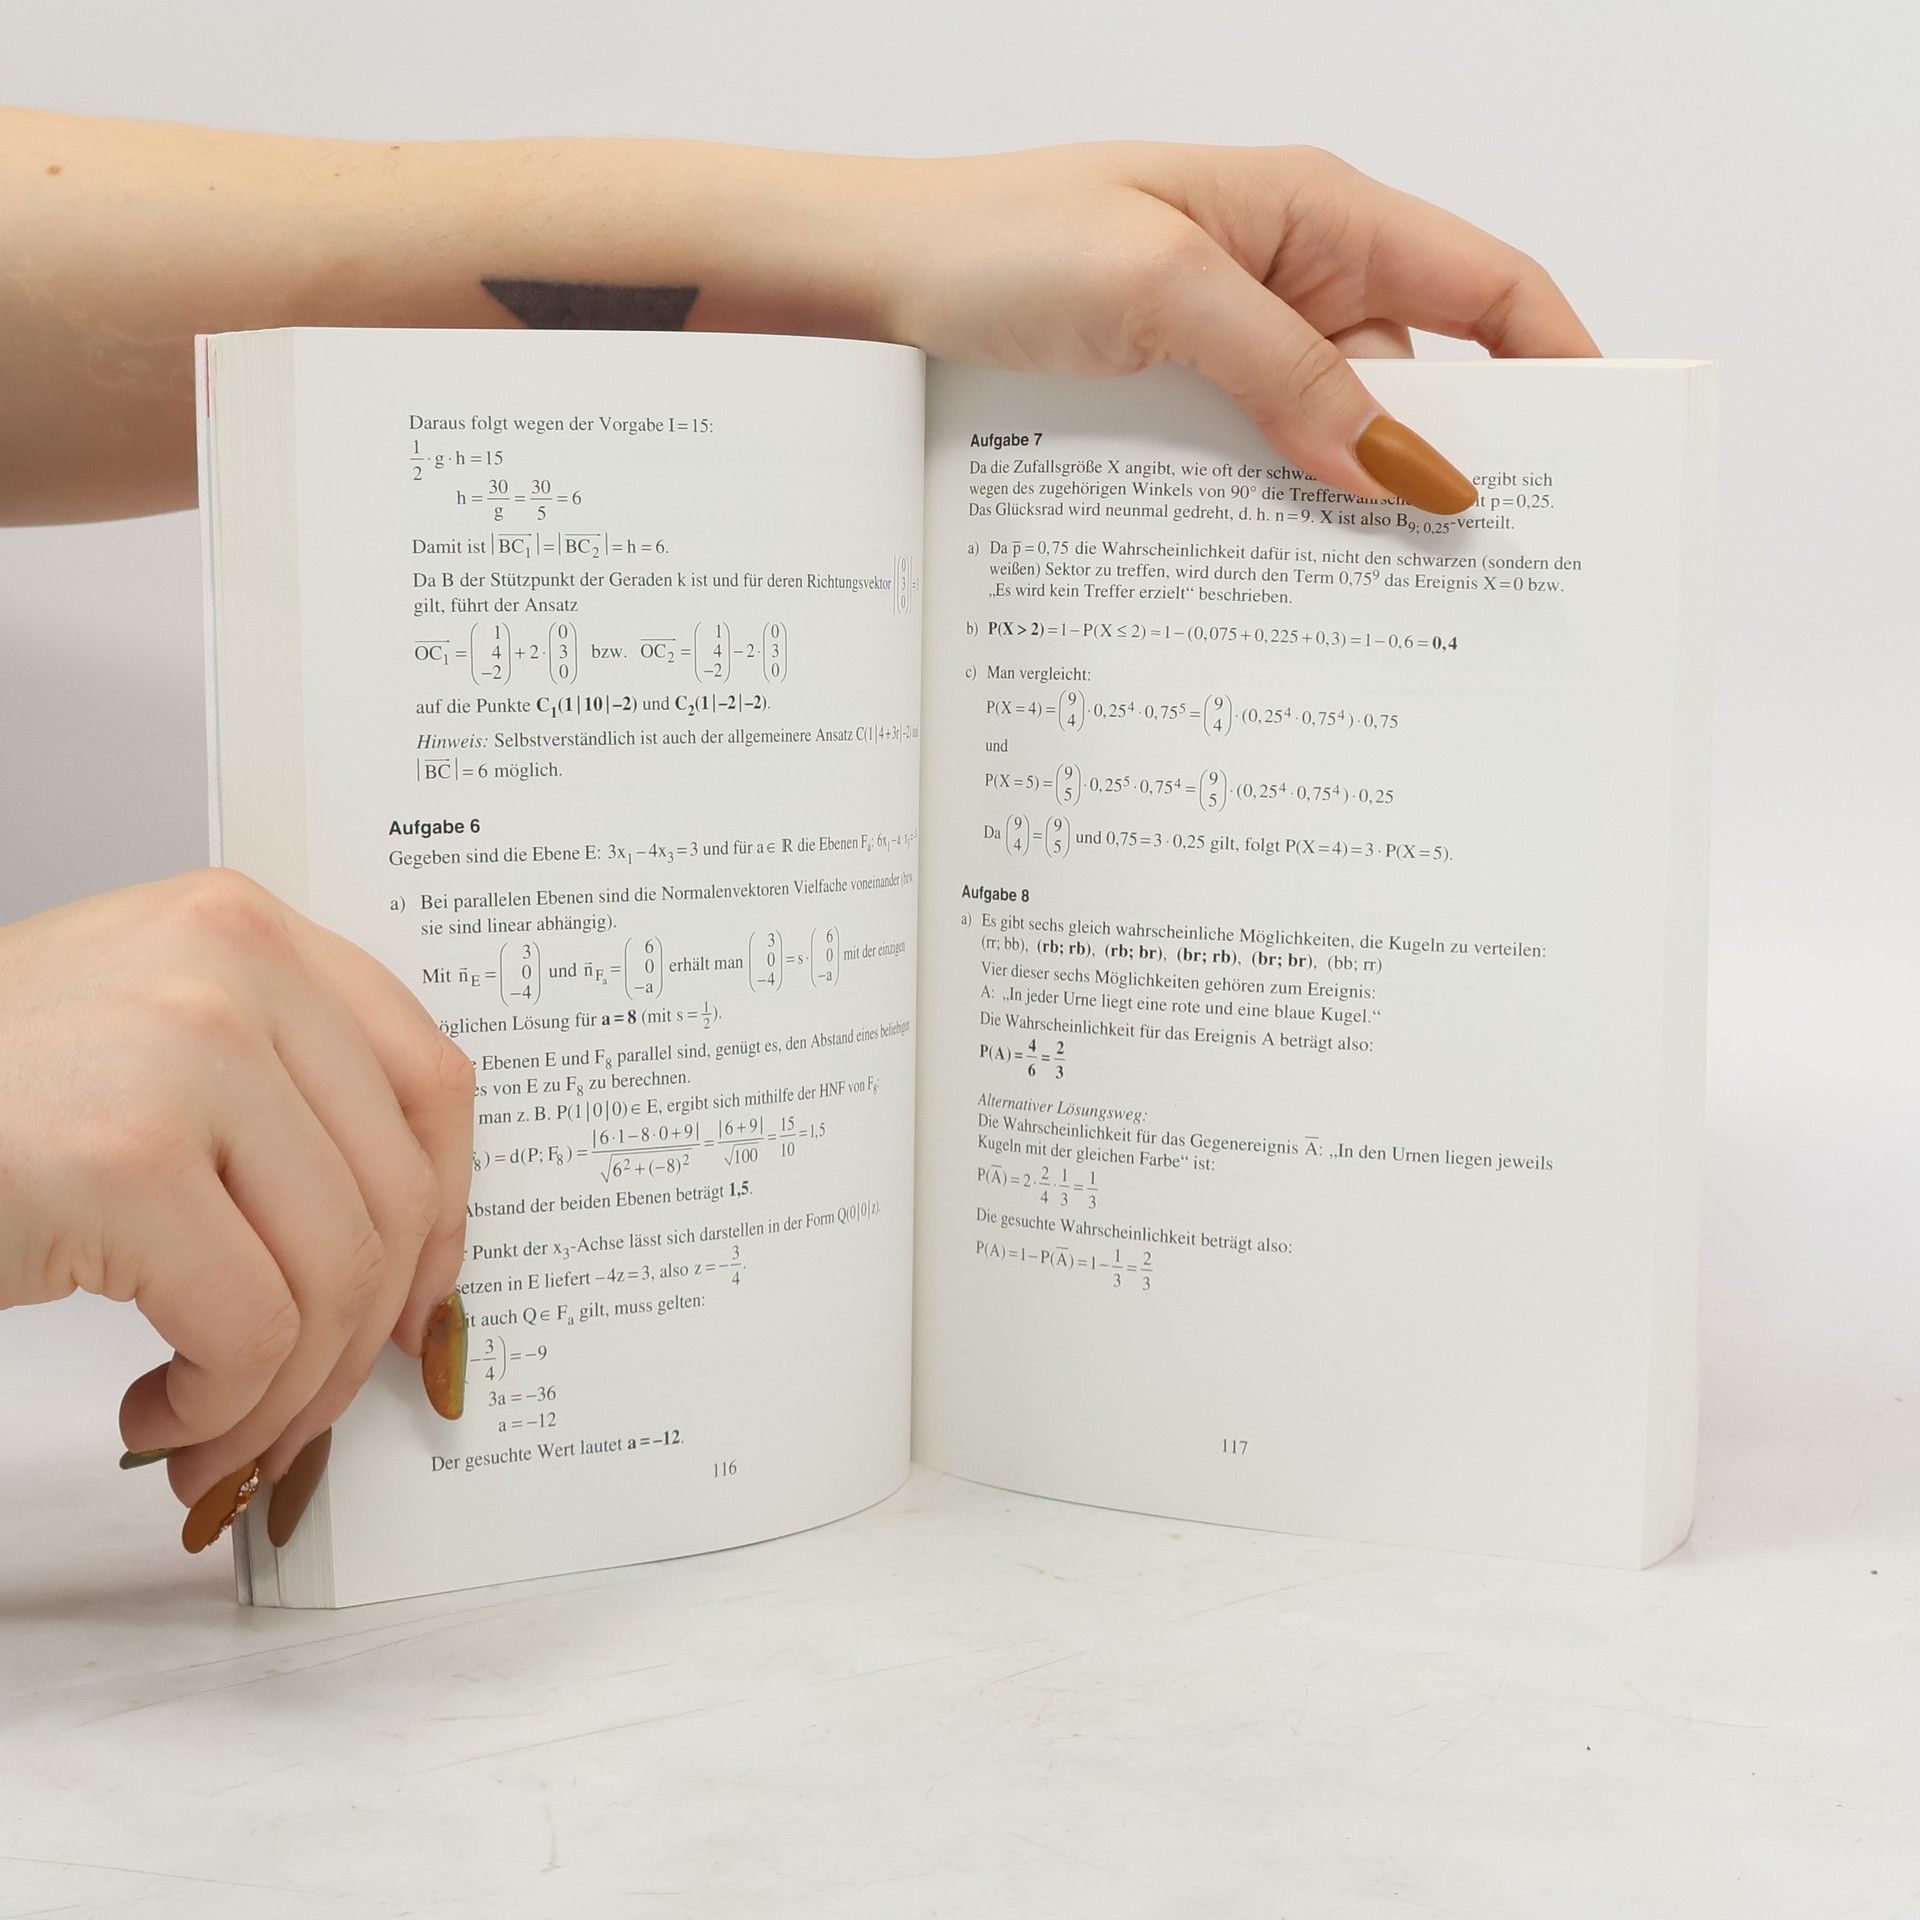 Daraus folgt wegen der Vorgabe I = 15:
1/2 · g · h = 15
h = 30/g = 30/5 = 6
Damit ist |BC₁| = |BC₂| = h = 6.
Da B der Stützpunkt der Geraden k ist und für deren Richtungsvektor |(0 3 0)| = 3
gilt, führt der Ansatz
OC₁ = (1 4 −2) + 2 · (0 3 0) bzw. OC₂ = (1 4 −2) − 2 · (0 3 0)
auf die Punkte C₁(1|10|−2) und C₂(1|−2|−2).
Hinweis: Selbstverständlich ist auch der allgemeinere Ansatz C(1|4+3r|−2) und
|BC| = 6 möglich.
Aufgabe 6
Gegeben sind die Ebene E: 3x₁ − 4x₃ = 3 und für a ∈ R die Ebenen Fₐ: 6x₁ − a · x₃ =
a) Bei parallelen Ebenen sind die Normalenvektoren Vielfache voneinander (bzw.
sie sind linear abhängig).
Mit n⃗_E = (3 0 −4) und n⃗_Fₐ = (6 0 −a) erhält man (3 0 −4) = s · (6 0 −a) mit der einzigen
öglichen Lösung für a = 8 (mit s = 1/2).
Ebenen E und F₈ parallel sind, genügt es, den Abstand eines beliebigen
es von E zu F₈ zu berechnen.
man z. B. P(1|0|0) ∈ E, ergibt sich mithilfe der HNF von F₈:
₈) = d(P; F₈) = |6·1−8·0+9| / √(6²+(−8)²) = |6+9| / √100 = 15/10 = 1,5
Abstand der beiden Ebenen beträgt 1,5.
r Punkt der x₃-Achse lässt sich darstellen in der Form Q(0|0|z).
setzen in E liefert −4z = 3, also z = −3/4.
it auch Q ∈ Fₐ gilt, muss gelten:
−3/4) = −9
3a = −36
a = −12
Der gesuchte Wert lautet a = −12.
116
Aufgabe 7
Da die Zufallsgröße X angibt, wie oft der schwa ergibt sich
wegen des zugehörigen Winkels von 90° die Trefferwahrsch it p = 0,25.
Das Glücksrad wird neunmal gedreht, d. h. n = 9. X ist also B₉; ₀,₂₅-verteilt.
a) Da p̅ = 0,75 die Wahrscheinlichkeit dafür ist, nicht den schwarzen (sondern den
weißen) Sektor zu treffen, wird durch den Term 0,75⁹ das Ereignis X = 0 bzw.
„Es wird kein Treffer erzielt“ beschrieben.
b) P(X > 2) = 1 − P(X ≤ 2) ≈ 1 − (0,075 + 0,225 + 0,3) = 1 − 0,6 = 0,4
c) Man vergleicht:
P(X = 4) = (9 4) · 0,25⁴ · 0,75⁵ = (9 4) · (0,25⁴ · 0,75⁴) · 0,75
und
P(X = 5) = (9 5) · 0,25⁵ · 0,75⁴ = (9 5) · (0,25⁴ · 0,75⁴) · 0,25
Da (9 4) = (9 5) und 0,75 = 3 · 0,25 gilt, folgt P(X = 4) = 3 · P(X = 5).
Aufgabe 8
a) Es gibt sechs gleich wahrscheinliche Möglichkeiten, die Kugeln zu verteilen:
(rr; bb), (rb; rb), (rb; br), (br; rb), (br; br), (bb; rr)
Vier dieser sechs Möglichkeiten gehören zum Ereignis:
A: „In jeder Urne liegt eine rote und eine blaue Kugel.“
Die Wahrscheinlichkeit für das Ereignis A beträgt also:
P(A) = 4/6 = 2/3
Alternativer Lösungsweg:
Die Wahrscheinlichkeit für das Gegenereignis A̅: „In den Urnen liegen jeweils
Kugeln mit der gleichen Farbe“ ist:
P(A̅) = 2 · 2/4 · 1/3 = 1/3
Die gesuchte Wahrscheinlichkeit beträgt also:
P(A) = 1 − P(A̅) = 1 − 1/3 = 2/3
117